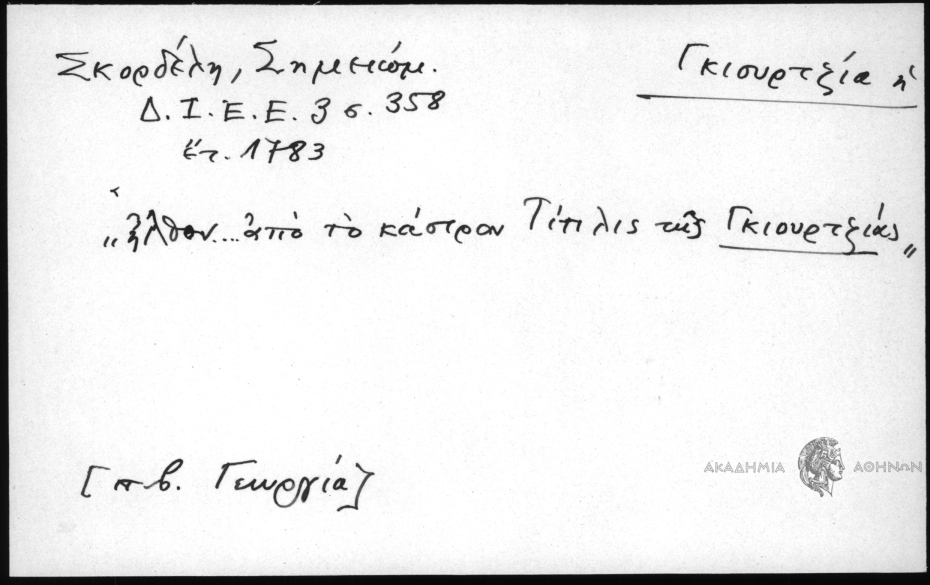 Σκορδέλη, Σημειώμ.
Γκιουρτζία ἡ
Δ. Ι. Ε. Ε. 3 σ. 358
ἔτ. 1783
„ἦλθον... ἀπὸ τὸ κάστρον Τίπιλις τῆς Γκιουρτζίας„
[πβ. Γεωργία]
ΑΚΑΔΗΜΙΑ ΑΘΗΝΩΝ